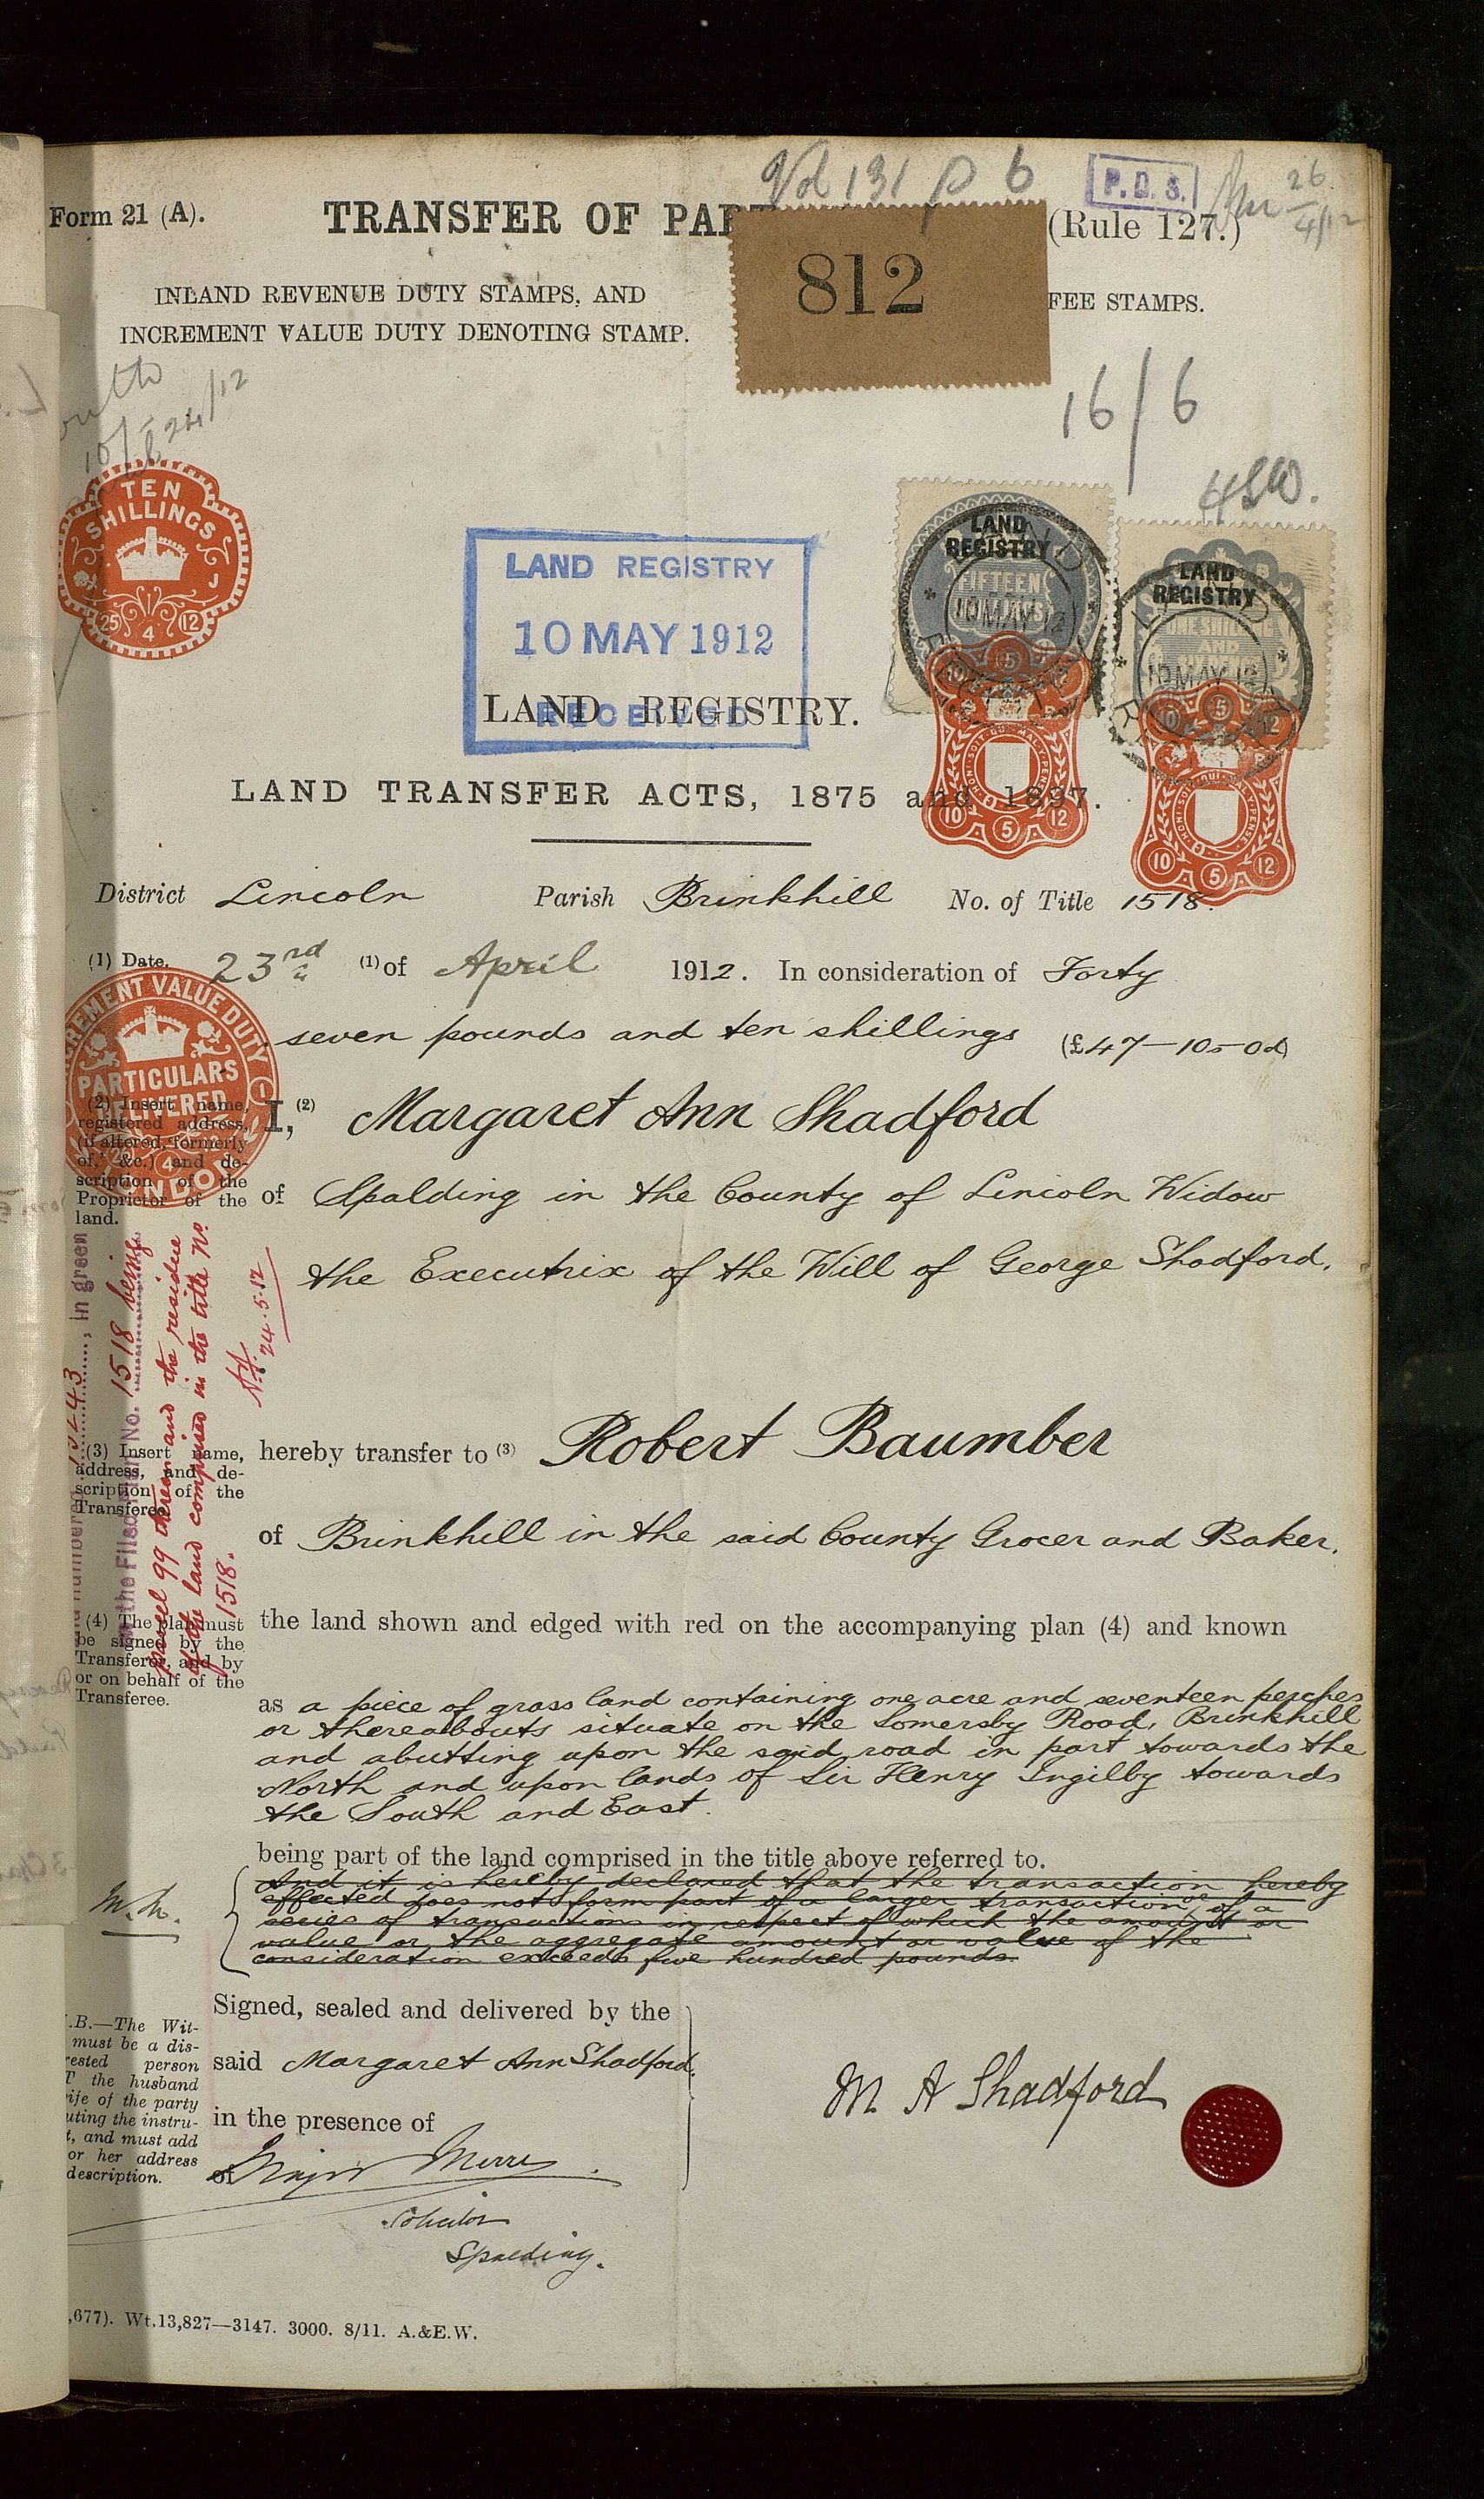 Vol 131 p 6
P.D.S.
26/4/12
Form 21 (A).
TRANSFER OF PAR
812
(Rule 127.)
INLAND REVENUE DUTY STAMPS, AND
INCREMENT VALUE DUTY DENOTING STAMP.
FEE STAMPS.
16/6
TEN
SHILLINGS
25 4 12
LAND REGISTRY
10 MAY 1912
RECEIVED
LAND
REGISTRY
FIFTEEN
SHILLINGS
10 MAY 12
LAND
REGISTRY
ONE SHILLING
AND
10 MAY 12
10 5 12
10 5 12
LAND REGISTRY.
LAND TRANSFER ACTS, 1875 and 1897.
District Lincoln Parish Brinkhill No. of Title 1518.
(1) Date. 23rd (1) of April 1912. In consideration of Forty
seven pounds and ten shillings (£47-10s-0d)
INCREMENT VALUE DUTY
PARTICULARS
DELIVERED
LONDON
(2) Insert name,
registered address,
(if altered, 'formerly
of,' &c.) and de-
scription of the
Proprietor of the
land.
I, (2) Margaret Ann Shadford
of Spalding in the County of Lincoln Widow
the Executrix of the Will of George Shadford.
, in green
the Filed Plan No. 1518 being
parcel 99 thereon and the residue
of the land comprised in the title No
1518.
24.5.12
(3) Insert name,
address, and de-
scription of the
Transferee.
hereby transfer to (3) Robert Baumber
of Brinkhill in the said County Grocer and Baker.
(4) The plan must
be signed by the
Transferor, and by
or on behalf of the
Transferee.
the land shown and edged with red on the accompanying plan (4) and known
as a piece of grass land containing one acre and seventeen perches
or thereabouts situate on the Somersby Road, Brinkhill
and abutting upon the said road in part towards the
North and upon lands of Sir Henry Ingilby towards
the South and East.
being part of the land comprised in the title above referred to.
And it is hereby declared that the transaction hereby
effected does not form part of a larger transaction or of a
series of transactions in respect of which the amount or
value or the aggregate amount or value of the
consideration exceeds five hundred pounds.
M.M.
Signed, sealed and delivered by the
said Margaret Ann Shadford.
in the presence of
of
Solicitor
Spalding.
M A Shadford
.B.—The Wit-
must be a dis-
rested person
T the husband
ife of the party
uting the instru-
t, and must add
or her address
description.
,677). Wt.13,827—3147. 3000. 8/11. A.&E.W.